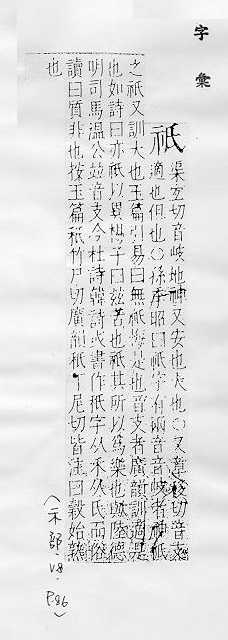 字彙
祇
渠宜切音岐地神又安也大也○又章移切音支
適也但也○孫奕示昭曰祇字有兩音音岐者神祇
之祇又訓大也玉篇引易曰無祇悔是也音支者廣韻訓適是
也如詩曰亦祇以異楊子曰茲苦也祇其所以為樂也歟陸德
明司馬溫公並音支今杜詩韓詩或書作秖字从禾从氏而俗
讀曰質非也按玉篇秖竹尸切廣韻秖丁尼切皆注曰穀始熟
也
(示部.
P.86)